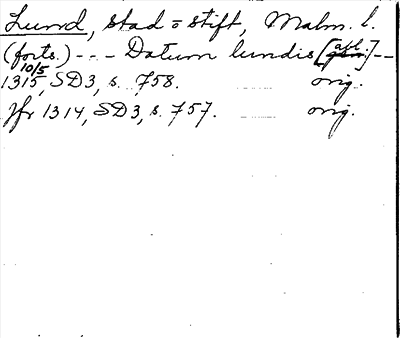 Lund, stad = stift, Malm. l.
(forts.) --- Datum lundis [abl.] --
10/5
1315, SD3, s. 758. orig.
Jfr 1314, SD3, s. 757. orig.